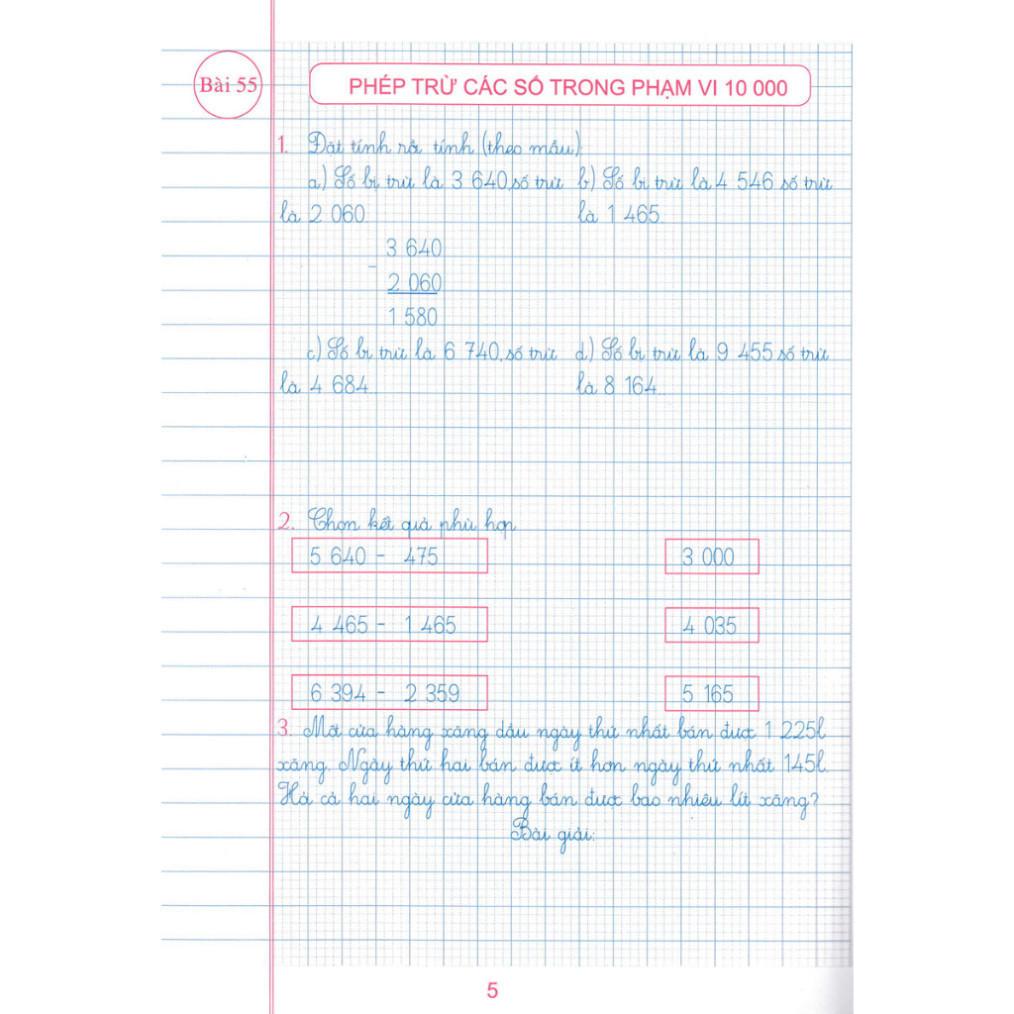 Bài 55
PHÉP TRỪ CÁC SỐ TRONG PHẠM VI 10 000
1. Đặt tính rồi tính (theo mẫu)
a) Số bị trừ là 3 640, số trừ b) Số bị trừ là 4 546 số trừ
là 2 060 là 1 465.
3 640
-
2 060
1 580
c) Số bị trừ là 6 740, số trừ d) Số bị trừ là 9 455 số trừ
là 4 684. là 8 164.
2. Chọn kết quả phù hợp
5 640 - 475 3 000
4 465 - 1 465 4 035
6 394 - 2 359 5 165
3. Một cửa hàng xăng dầu ngày thứ nhất bán được 1 225l
xăng. Ngày thứ hai bán được ít hơn ngày thứ nhất 145l.
Hỏi cả hai ngày cửa hàng bán được bao nhiêu lít xăng?
Bài giải:
5